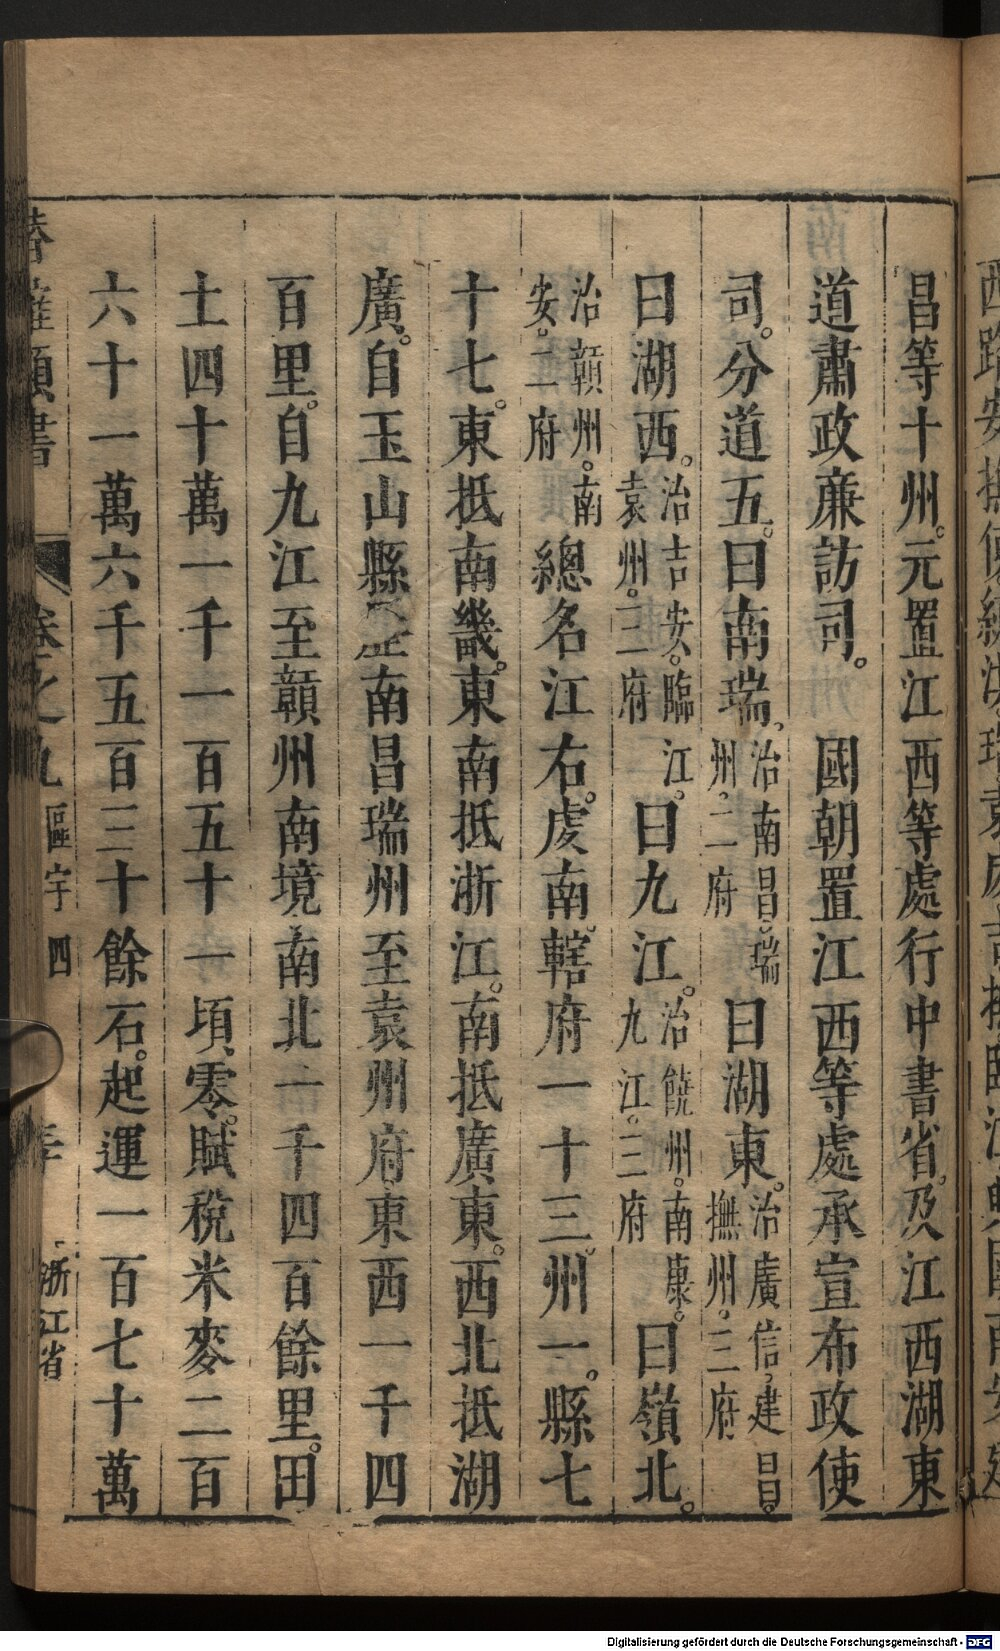 昌等十州。元置江西等處行中書省。及江西湖東
道肅政廉訪司。國朝置江西等處承宣布政使
司。分道五。曰南瑞。治南昌。瑞州。二府曰湖東。治廣信。建昌。撫州。三府
曰湖西。治吉安。臨江。袁州。三府曰九江。治饒州。南康。九江。三府曰嶺北。
治贛州。南安。二府總名江右。虔南。轄府一十三。州一。縣七
十七。東抵南畿。東南抵浙江。南抵廣東。西北抵湖
廣。自玉山縣歷南昌瑞州至袁州府。東西一千四
百里。自九江至贛州南境南北一千四百餘里。田
土四十萬一千一百五十一頃零。賦稅米麥二百
六十一萬六千五百三十餘石。起運一百七十萬
卷之九 區宇四
浙江省
Digitalisierung gefördert durch die Deutsche Forschungsgemeinschaft - DFG